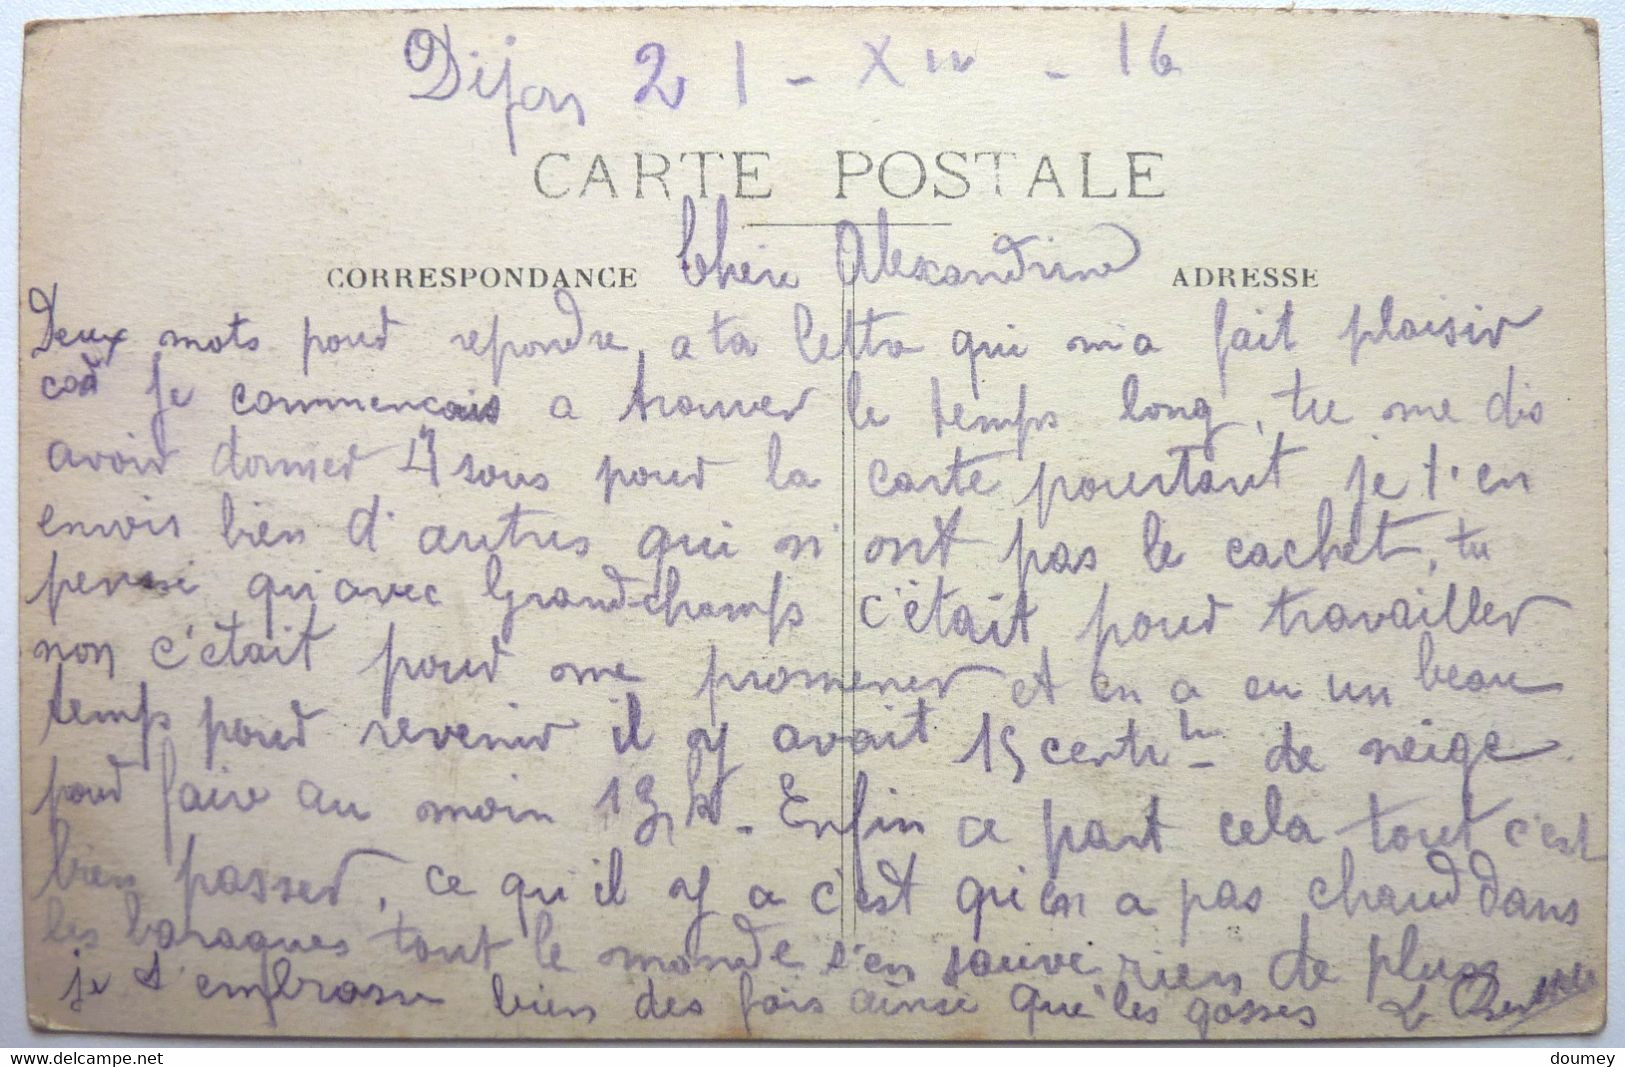 Dijon 21 - XII - 16
CARTE POSTALE
CORRESPONDANCE
Chère Alexandrine
ADRESSE
Deux mots pour repondre a ta lettre qui m'a fait plaisir
car je commencais a trouver le temps long, tu me dis
avoir donner 4 sous pour la carte pourtant je t'en
envois bien d'autres qui n'ont pas le cachet, tu
pensai qu'avec Grandchamps c'était pour travailler
non c'était pour me promener et en a eu un beau
temps pour revenir il y avait 15 centi de neige
pour faire au moin 13 k. Enfin ce part cela tout c'est
bien passer, ce qu'il y a c'est qu'en a pas chaud dans
les baraques tout le monde s'en sauve rien de plus
je t'embrasse bien des fois ainsi que les gosses
doumey